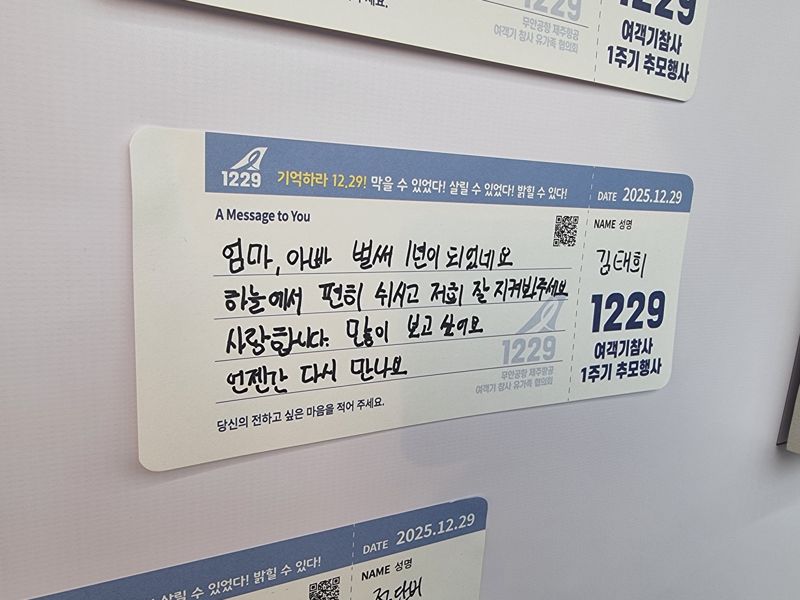 1229
여객기참사
1주기 추모행사
무안공항 제주항공
여객기 참사 유가족 협의회
1229
기억하라 12.29! 막을 수 있었다! 살릴 수 있었다! 밝힐 수 있다!
DATE 2025.12.29
A Message to You
NAME 성명
김태희
엄마, 아빠 벌써 1년이 되었네요
하늘에서 편히 쉬시고 저희 잘 지켜봐주세요
사랑합니다. 많이 보고 싶어요
언젠간 다시 만나요
1229
무안공항 제주항공
여객기 참사 유가족 협의회
1229
여객기참사
1주기 추모행사
당신의 전하고 싶은 마음을 적어 주세요.
살릴 수 있었다! 밝힐 수 있다!
DATE 2025.12.29
NAME 성명